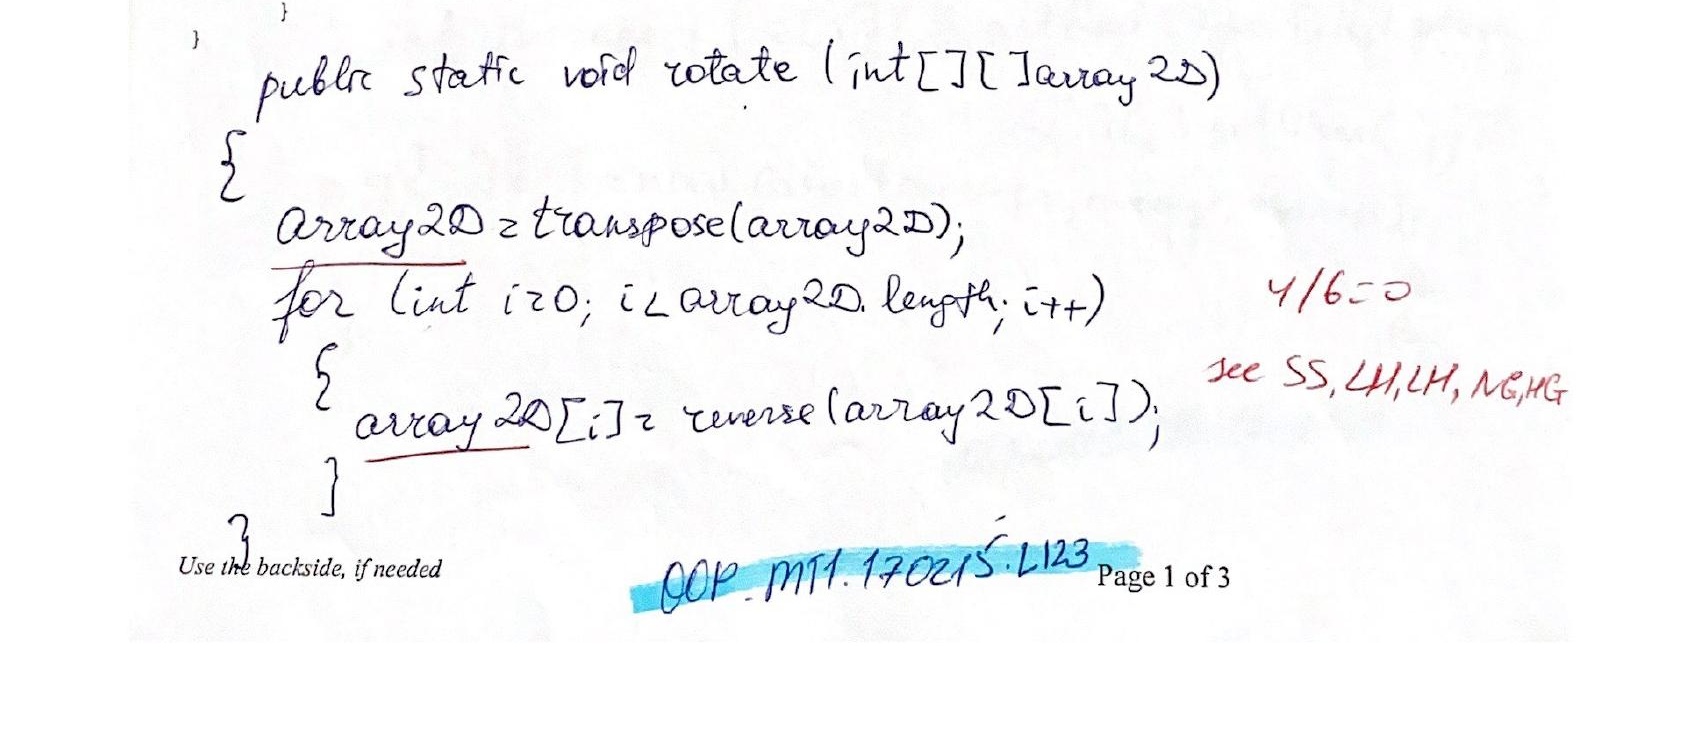 }
}
public static void rotate (int[][]array2D)
{
array2D=transpose(array2D);
for (int i=0; i<array2D.length; i++)
4/6=0
{
see SS, LH, LH, NG, HG
array2D[i]= reverse(array2D[i]);
}
}
Use the backside, if needed
OOP_MT1.170215.L123
Page 1 of 3